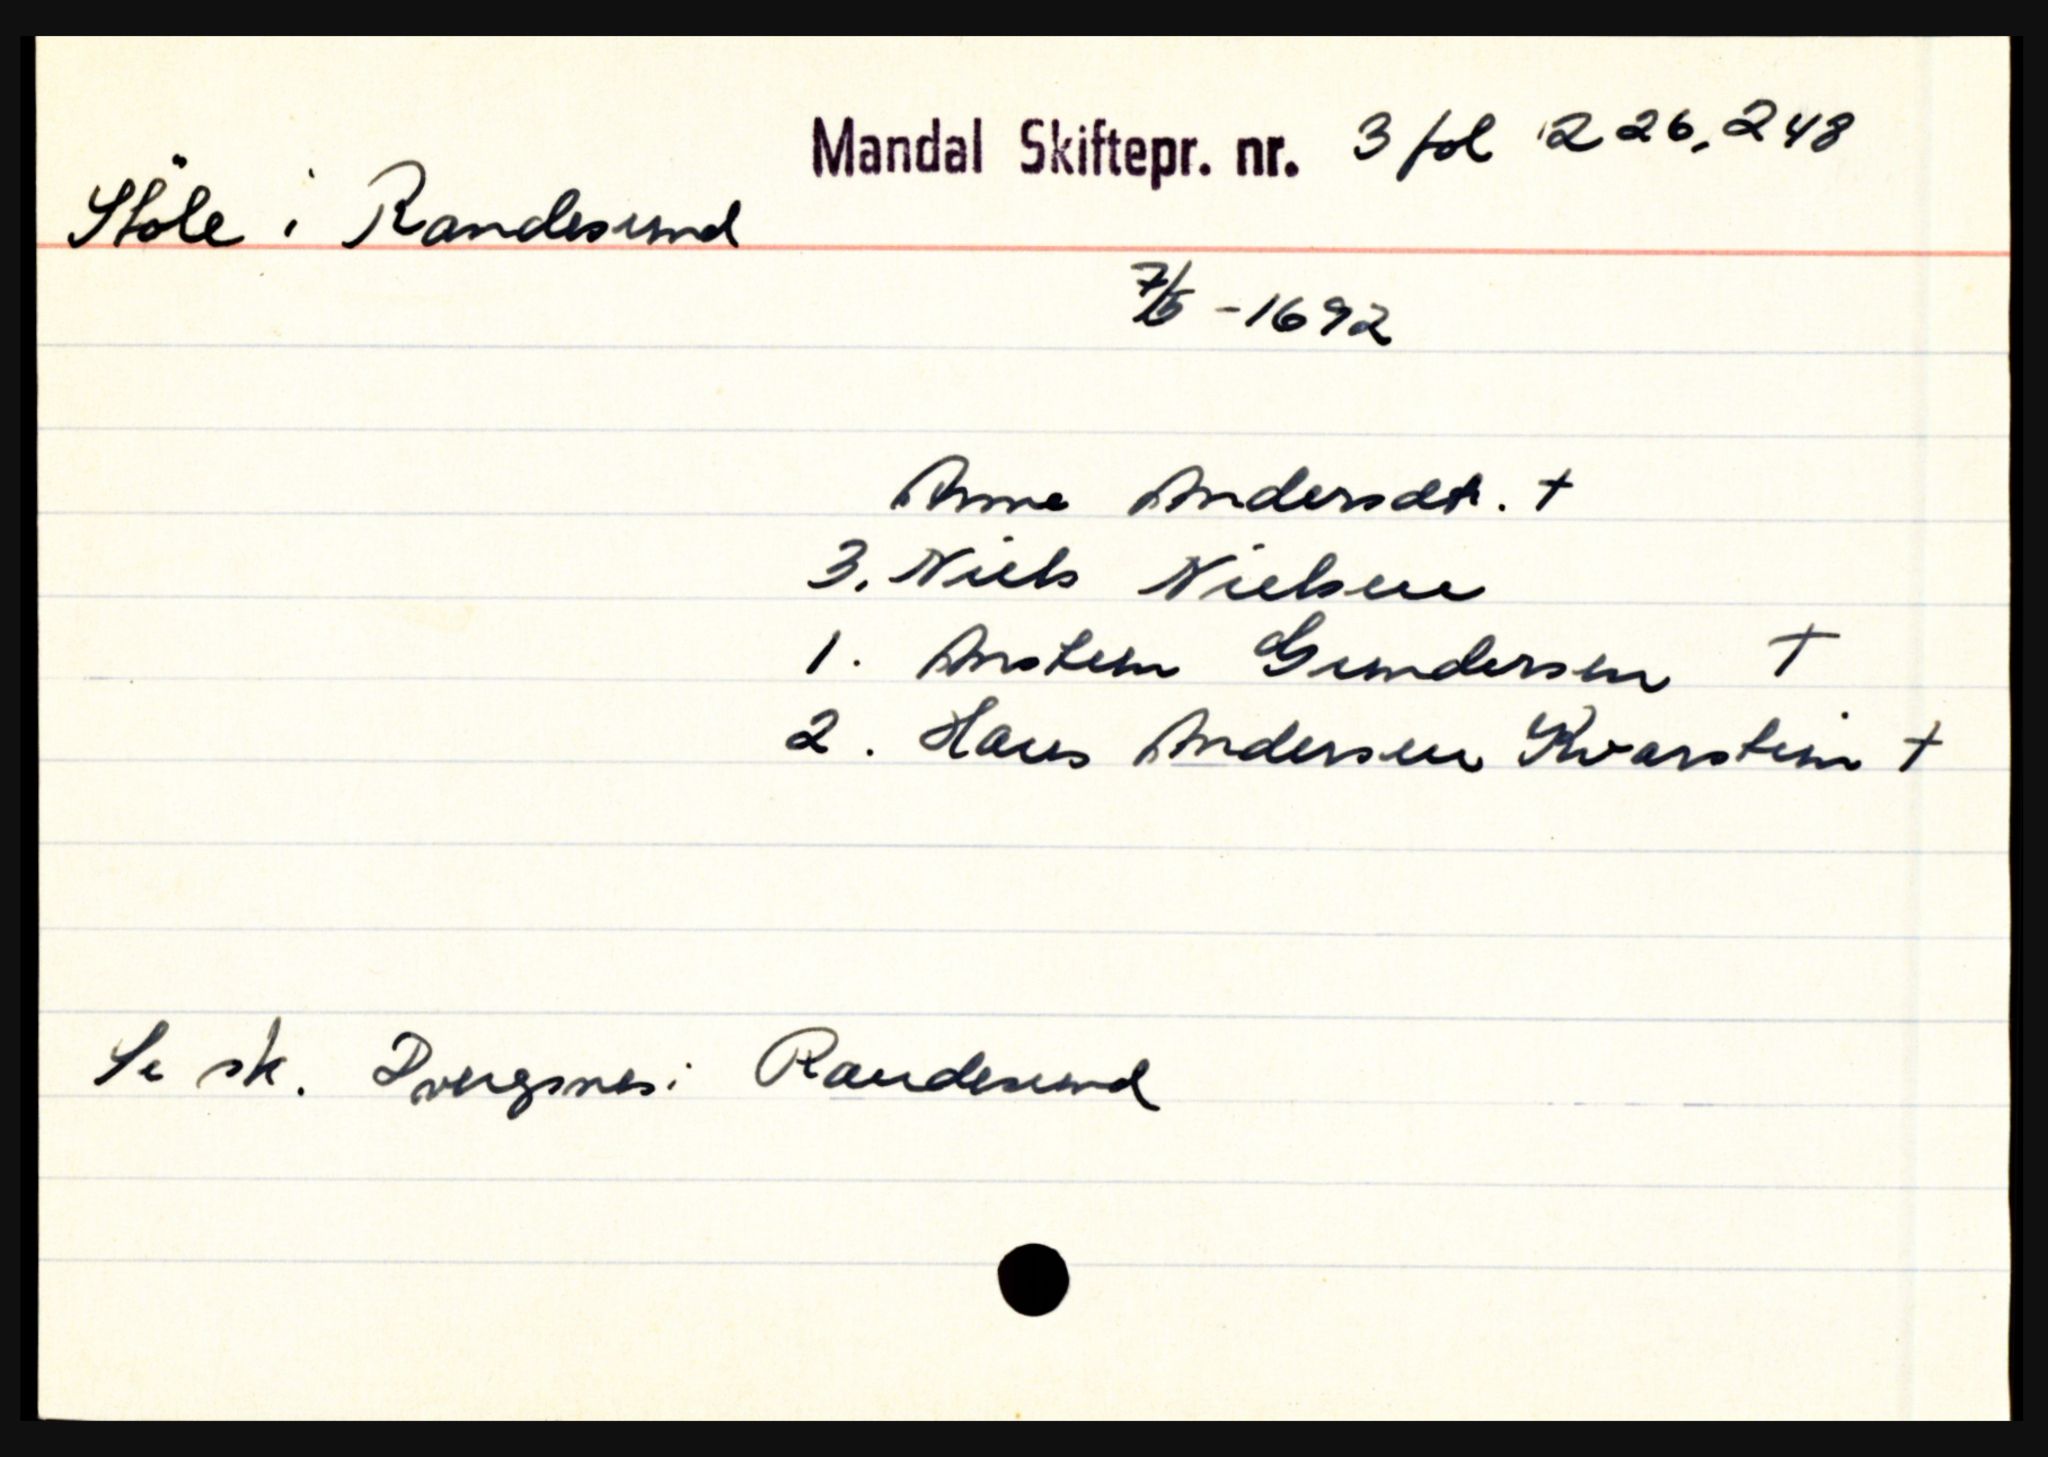 Mandal Skiftepr. nr. 3 fol 226, 248
Støle i Randesund
7/5 - 1692
Anne Andersdtr. †
3. Niels Nielsen
1. Anstein Gundersen †
2. Hans Andersen Kvarstein †
Se sk. Dvergsnes i Randesund